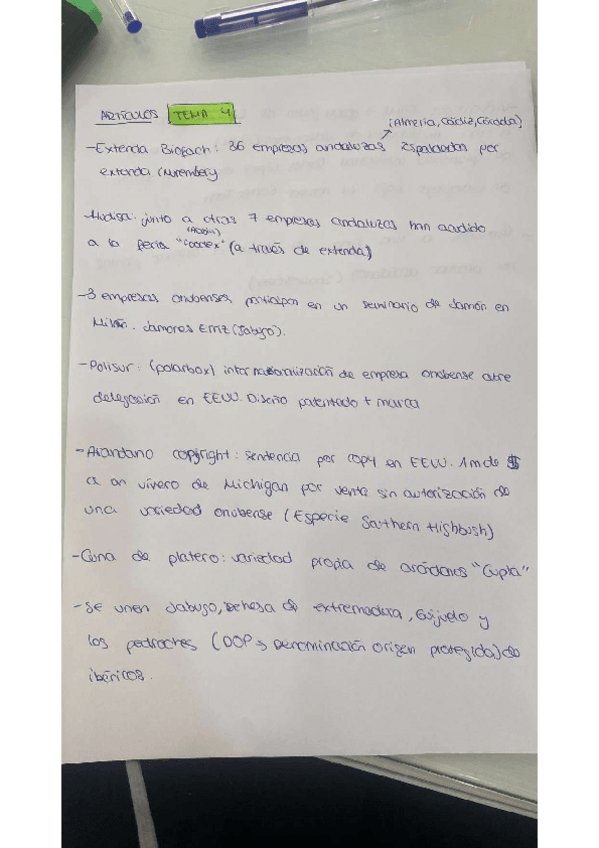 ARTÍCULOS TEMA 4
(Almería, Cádiz, Granada)
-Extenda Biofach: 36 empresas andaluzas respaldadas por
extenda (Nuremberg
junto a otras 7 empresas andaluzas han acudido
a la feria " " (a través de extenda)
-3 empresas onubenses participan en un seminario de Jamón en
Milán. Jamones Eíriz (Jabugo).
-Polisur: (polarbox) internacionalización de empresa onubense abre
delegación en EEUU. Diseño patentado + marca
-Arandano copyright: sentencia por copy en EEUU. 1m de $
a un vivero de Michigan por venta sin autorización de
una variedad onubense (Especie Southern Highbush)
-Cuna de platero: variedad propia de arándanos "Cupla"
-Se unen Jabugo, Dehesa de extremadura, Guijuelo y
los pedroches (DOP → Denominación Origen protegida) de
ibéricos.